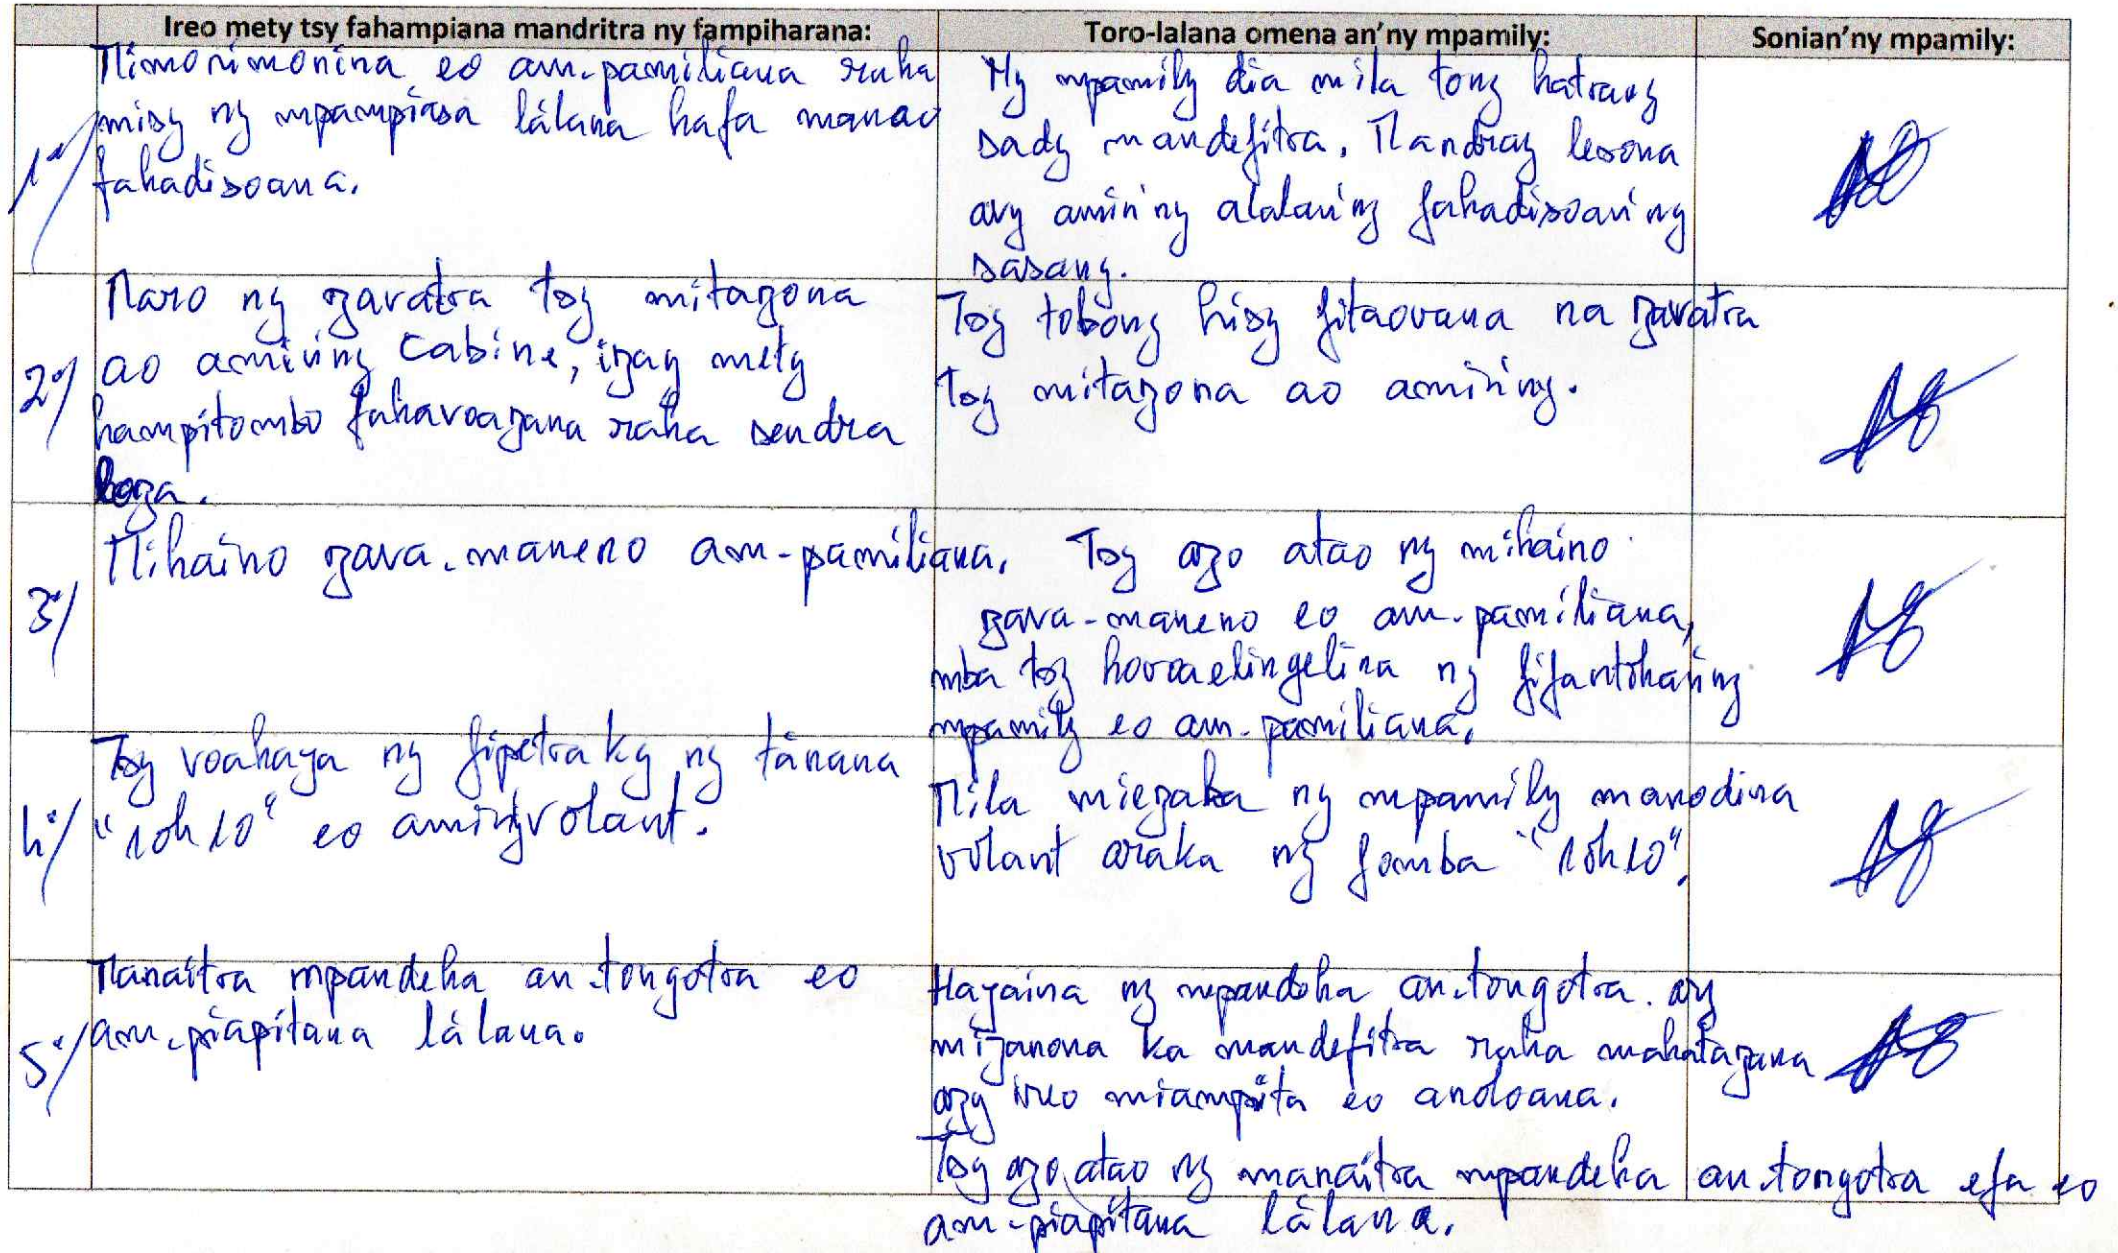 Ireo mety tsy fahampiana mandritra ny fampiharana:
Toro-lalana omena an'ny mpamily:
Sonian'ny mpamily:
1°/
Mimonimonina eo am-pamiliana raha
misy ny mpampiasa làlana hafa manao
fahadisoana.
Ny mpamily dia mila tony hatrany
sady mandefitra. Mandray lesona
avy amin'ny alalan'ny fahadisoan'ny
sasany.
2°/
Maro ny zavatra tsy mitazona
ao amin'iny cabine, izay mety
hampitombo fahavoazana raha sendra
loza.
Tsy tobony hisy fitaovana na zavatra
tsy mitazona ao amin'iny.
3°/
Mihaino zava-maneno am-pamiliana.
Tsy azo atao ny mihaino
zava-maneno eo am-pamiliana,
mba tsy hovaelingelina ny fifantohan'ny
mpamily eo am-pamiliana.
4°/
Tsy voahaja ny fipetraky ny tànana
"10h10" eo amin'ny volant.
Mila miezaka ny mpamily manodina
volant araka ny fomba "10h10".
5°/
Manaitra mpandeha an-tongotra eo
am-piapitana làlana.
Hajaina ny mpandeha an-tongotra. ary
mijanona ka mandefitra raha mahatazana
azy ireo miampita eo anoloana.
Tsy azo atao ny manaitra mpandeha an-tongotra efa eo
am-piapitana làlana.